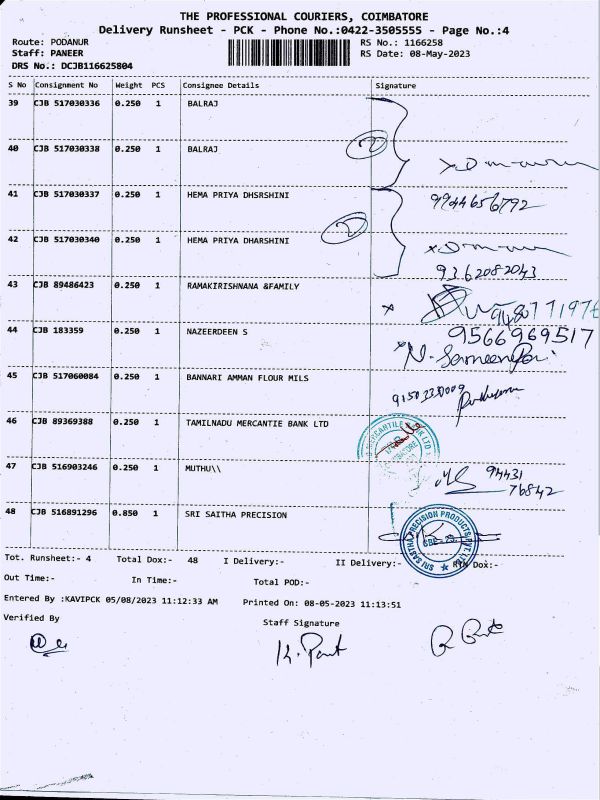 THE PROFESSIONAL COURIERS, COIMBATORE
Delivery Runsheet - PCK - Phone No.:0422-3505555 - Page No.:4
Route: PODANUR RS No.: 1166258
Staff: PANEER RS Date: 08-May-2023
DRS No.: DCJB116625804
S No Consignment No Weight PCS Consignee Details Signature
39 CJB 517030336 0.250 1 BALRAJ
40 CJB 517030338 0.250 1 BALRAJ
2
41 CJB 517030337 0.250 1 HEMA PRIYA DHSRSHINI 9944656792
2
42 CJB 517030340 0.250 1 HEMA PRIYA DHARSHINI
9362082043
43 CJB 89486423 0.250 1 RAMAKIRISHNANA &FAMILY
44 CJB 183359 0.250 1 NAZEERDEEN S 9566969517
45 CJB 517060084 0.250 1 BANNARI AMMAN FLOUR MILS
46 CJB 89369388 0.250 1 TAMILNADU MERCANTIE BANK LTD
47 CJB 516903246 0.250 1 MUTHU\\ 94431
76842
48 CJB 516891296 0.850 1 SRI SAITHA PRECISION
SRI SASTHA PRECISION PRODUCTS PVT. LTD.
Tot. Runsheet:- 4 Total Dox:- 48 I Delivery:- II Delivery:- RTN Dox:-
Out Time:- In Time:- Total POD:-
Entered By :KAVIPCK 05/08/2023 11:12:33 AM Printed On: 08-05-2023 11:13:51
Verified By Staff Signature